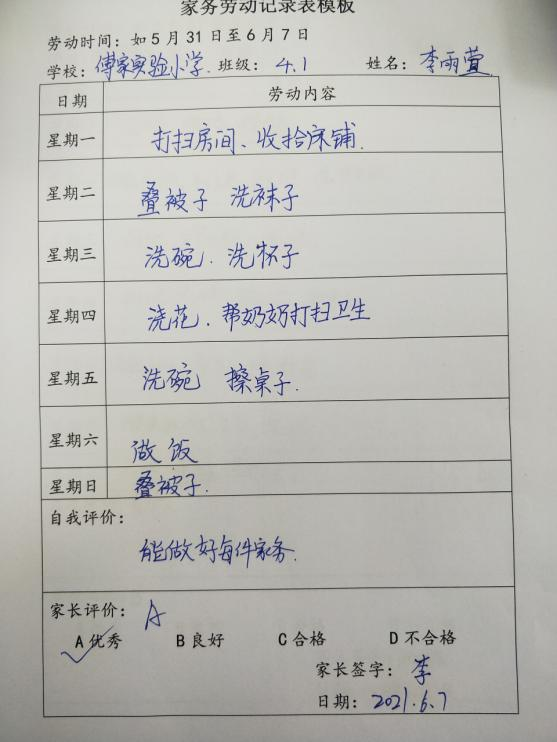 家务劳动记录表模板
劳动时间：如5月31日至6月7日
学校：傅家实验小学. 班级：4.1 姓名：李雨萱
日期 劳动内容
星期一 打扫房间、收拾床铺.
星期二 叠被子 洗袜子
星期三 洗碗. 洗杯子
星期四 浇花. 帮奶奶打扫卫生
星期五 洗碗 擦桌子.
星期六 做饭
星期日 叠被子.
自我评价：
能做好每件家务.
家长评价：A
A优秀 B良好 C合格 D不合格
家长签字：李
日期：2021.6.7